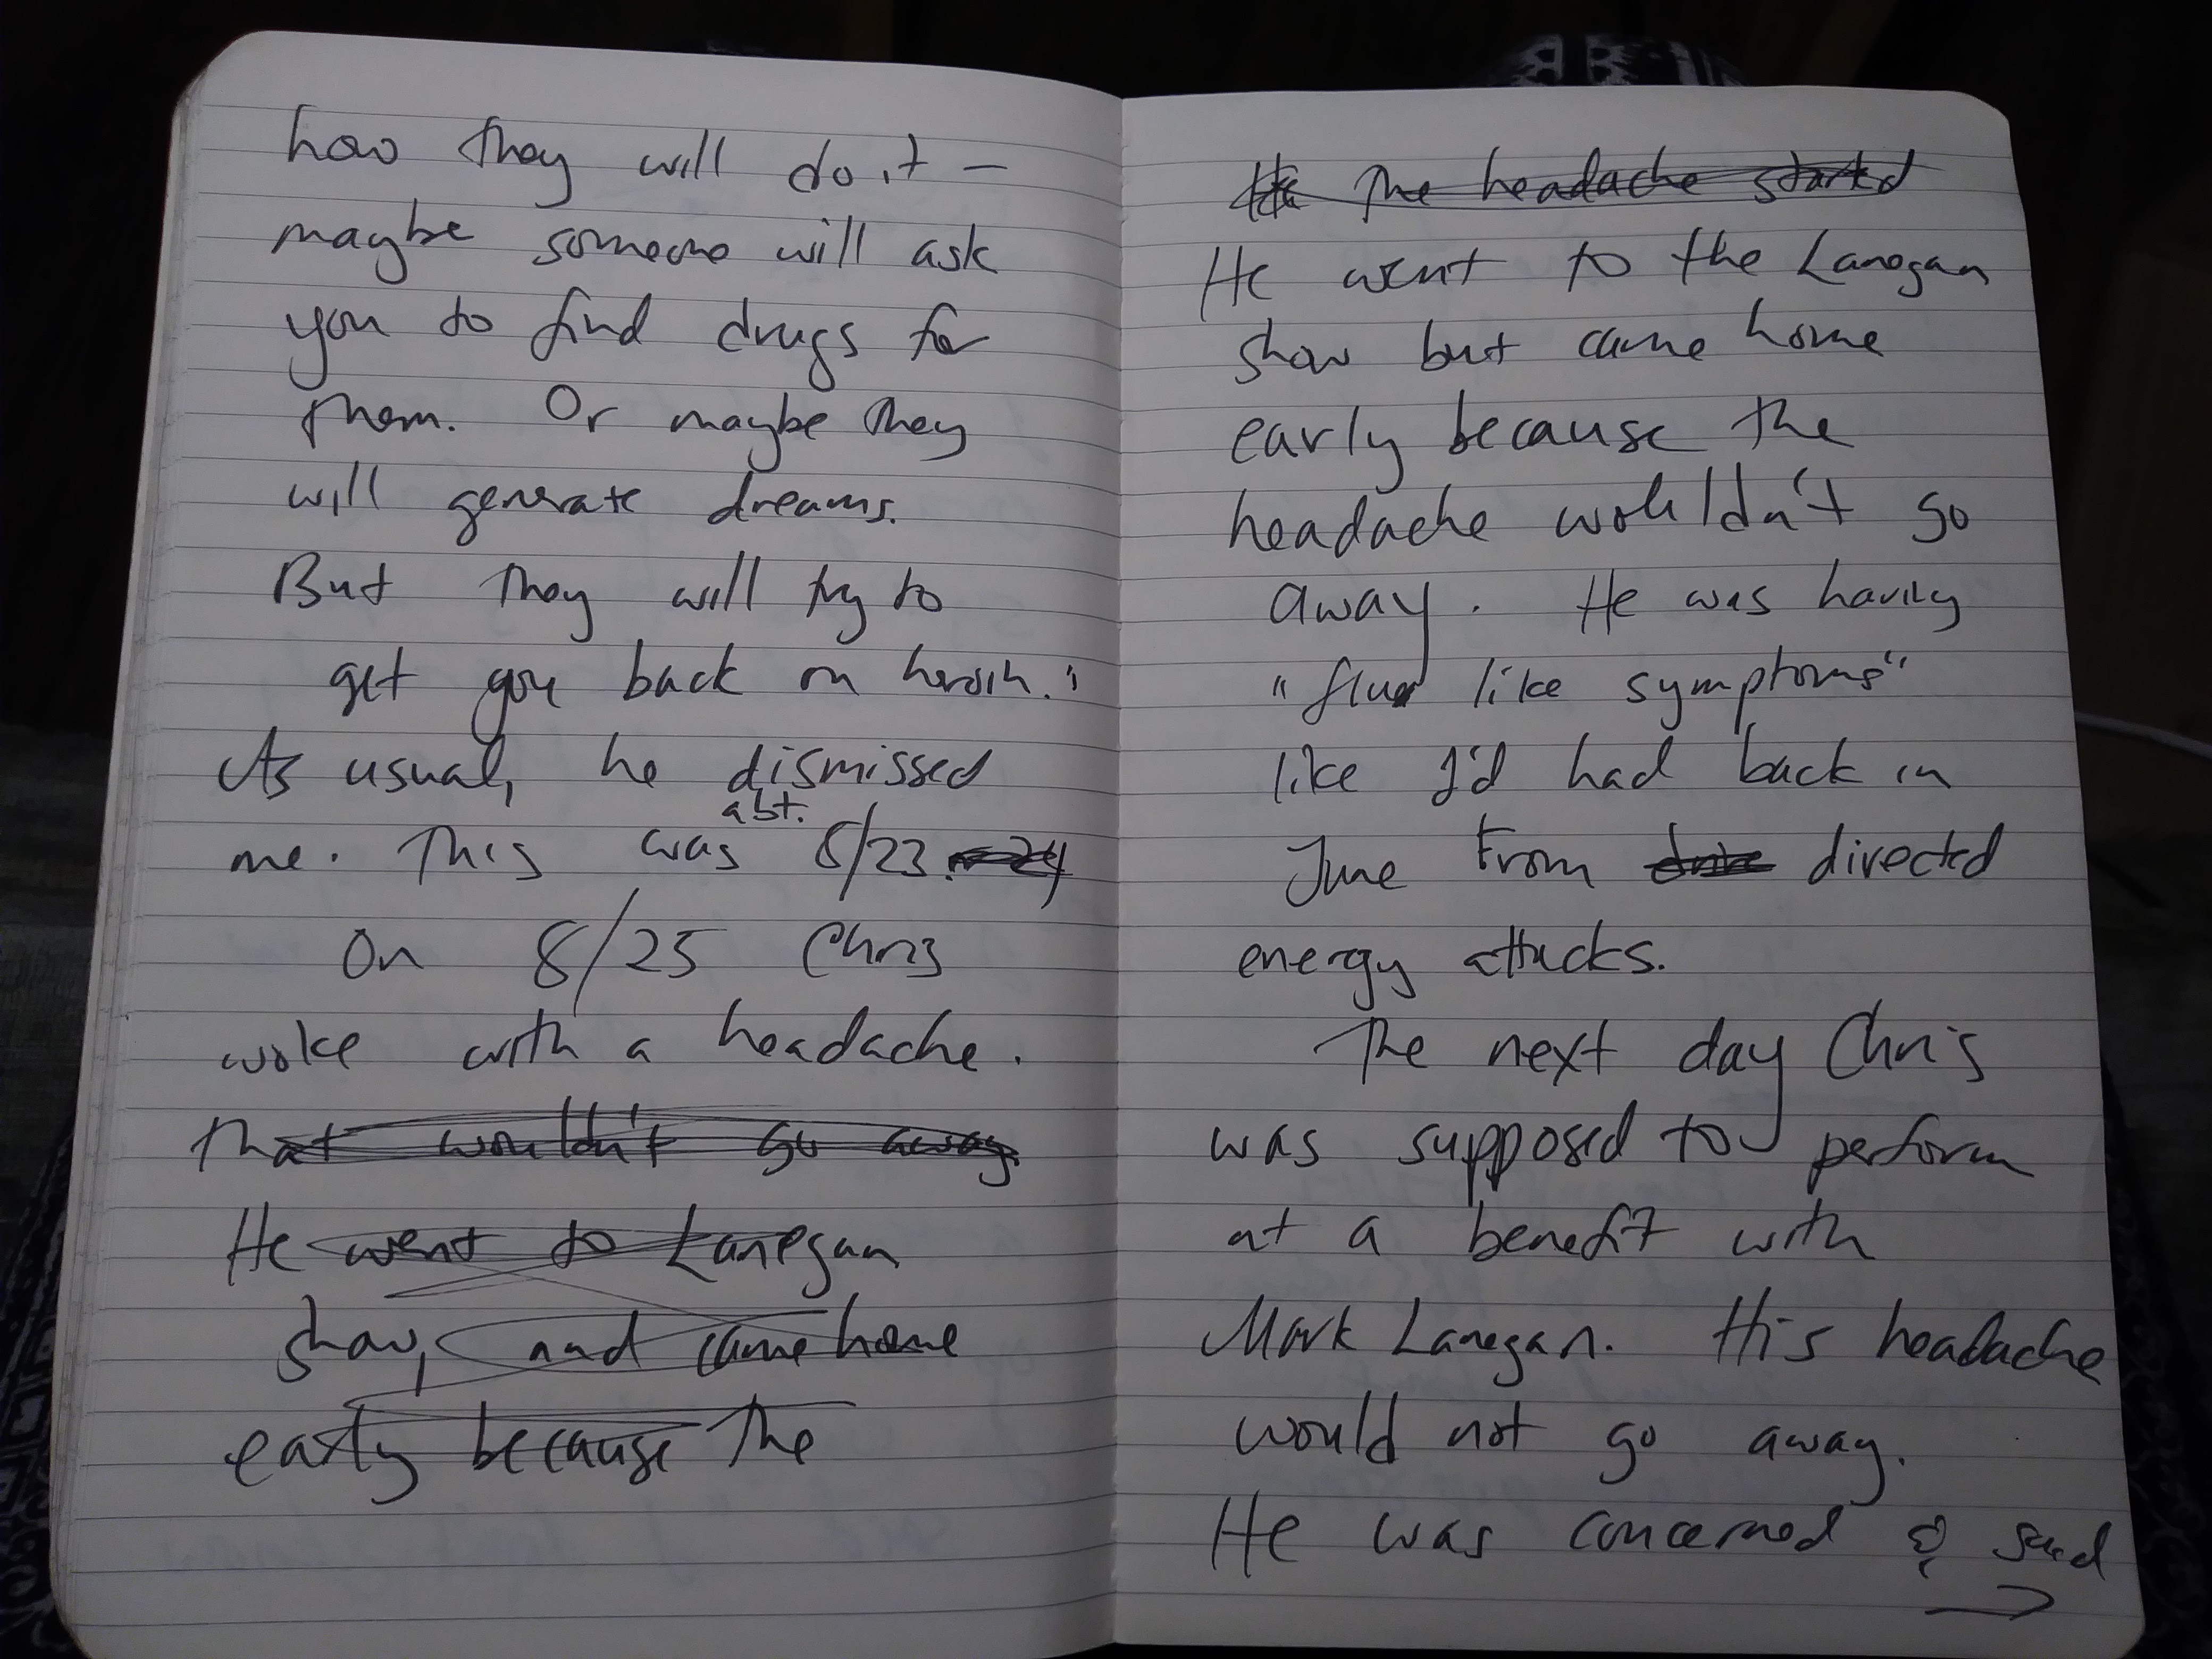 how they will do it –
maybe someone will ask
you to find drugs for
them. Or maybe they
will generate dreams.
But they will try to
get you back on heroin."
As usual, he dismissed
abt.
me. This was 8/23. – 24
On 8/25 Chris
woke with a headache.
that wouldn't go away.
He went to Lanegan
show, and came home
early because the
The headache started
He went to the Lanegan
show but came home
early because the
headache wouldn't go
away. He was having
"flu like symptoms"
like I'd had back in
June from directed
energy attacks.
The next day Chris
was supposed to perform
at a benefit with
Mark Lanegan. His headache
would not go away.
He was concerned & said
→